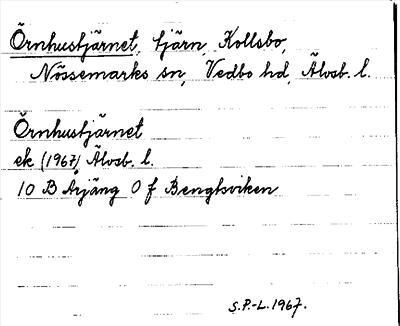 Örnhustjärnet, tjärn, Kollsbo,
Nössemarks sn, Vedbo hd, Älvsb. l.
Örnhustjärnet
ek (1967) Älvsb. l.
10 B Årjäng 0 f Bengtsviken
S.P.-L. 1967.